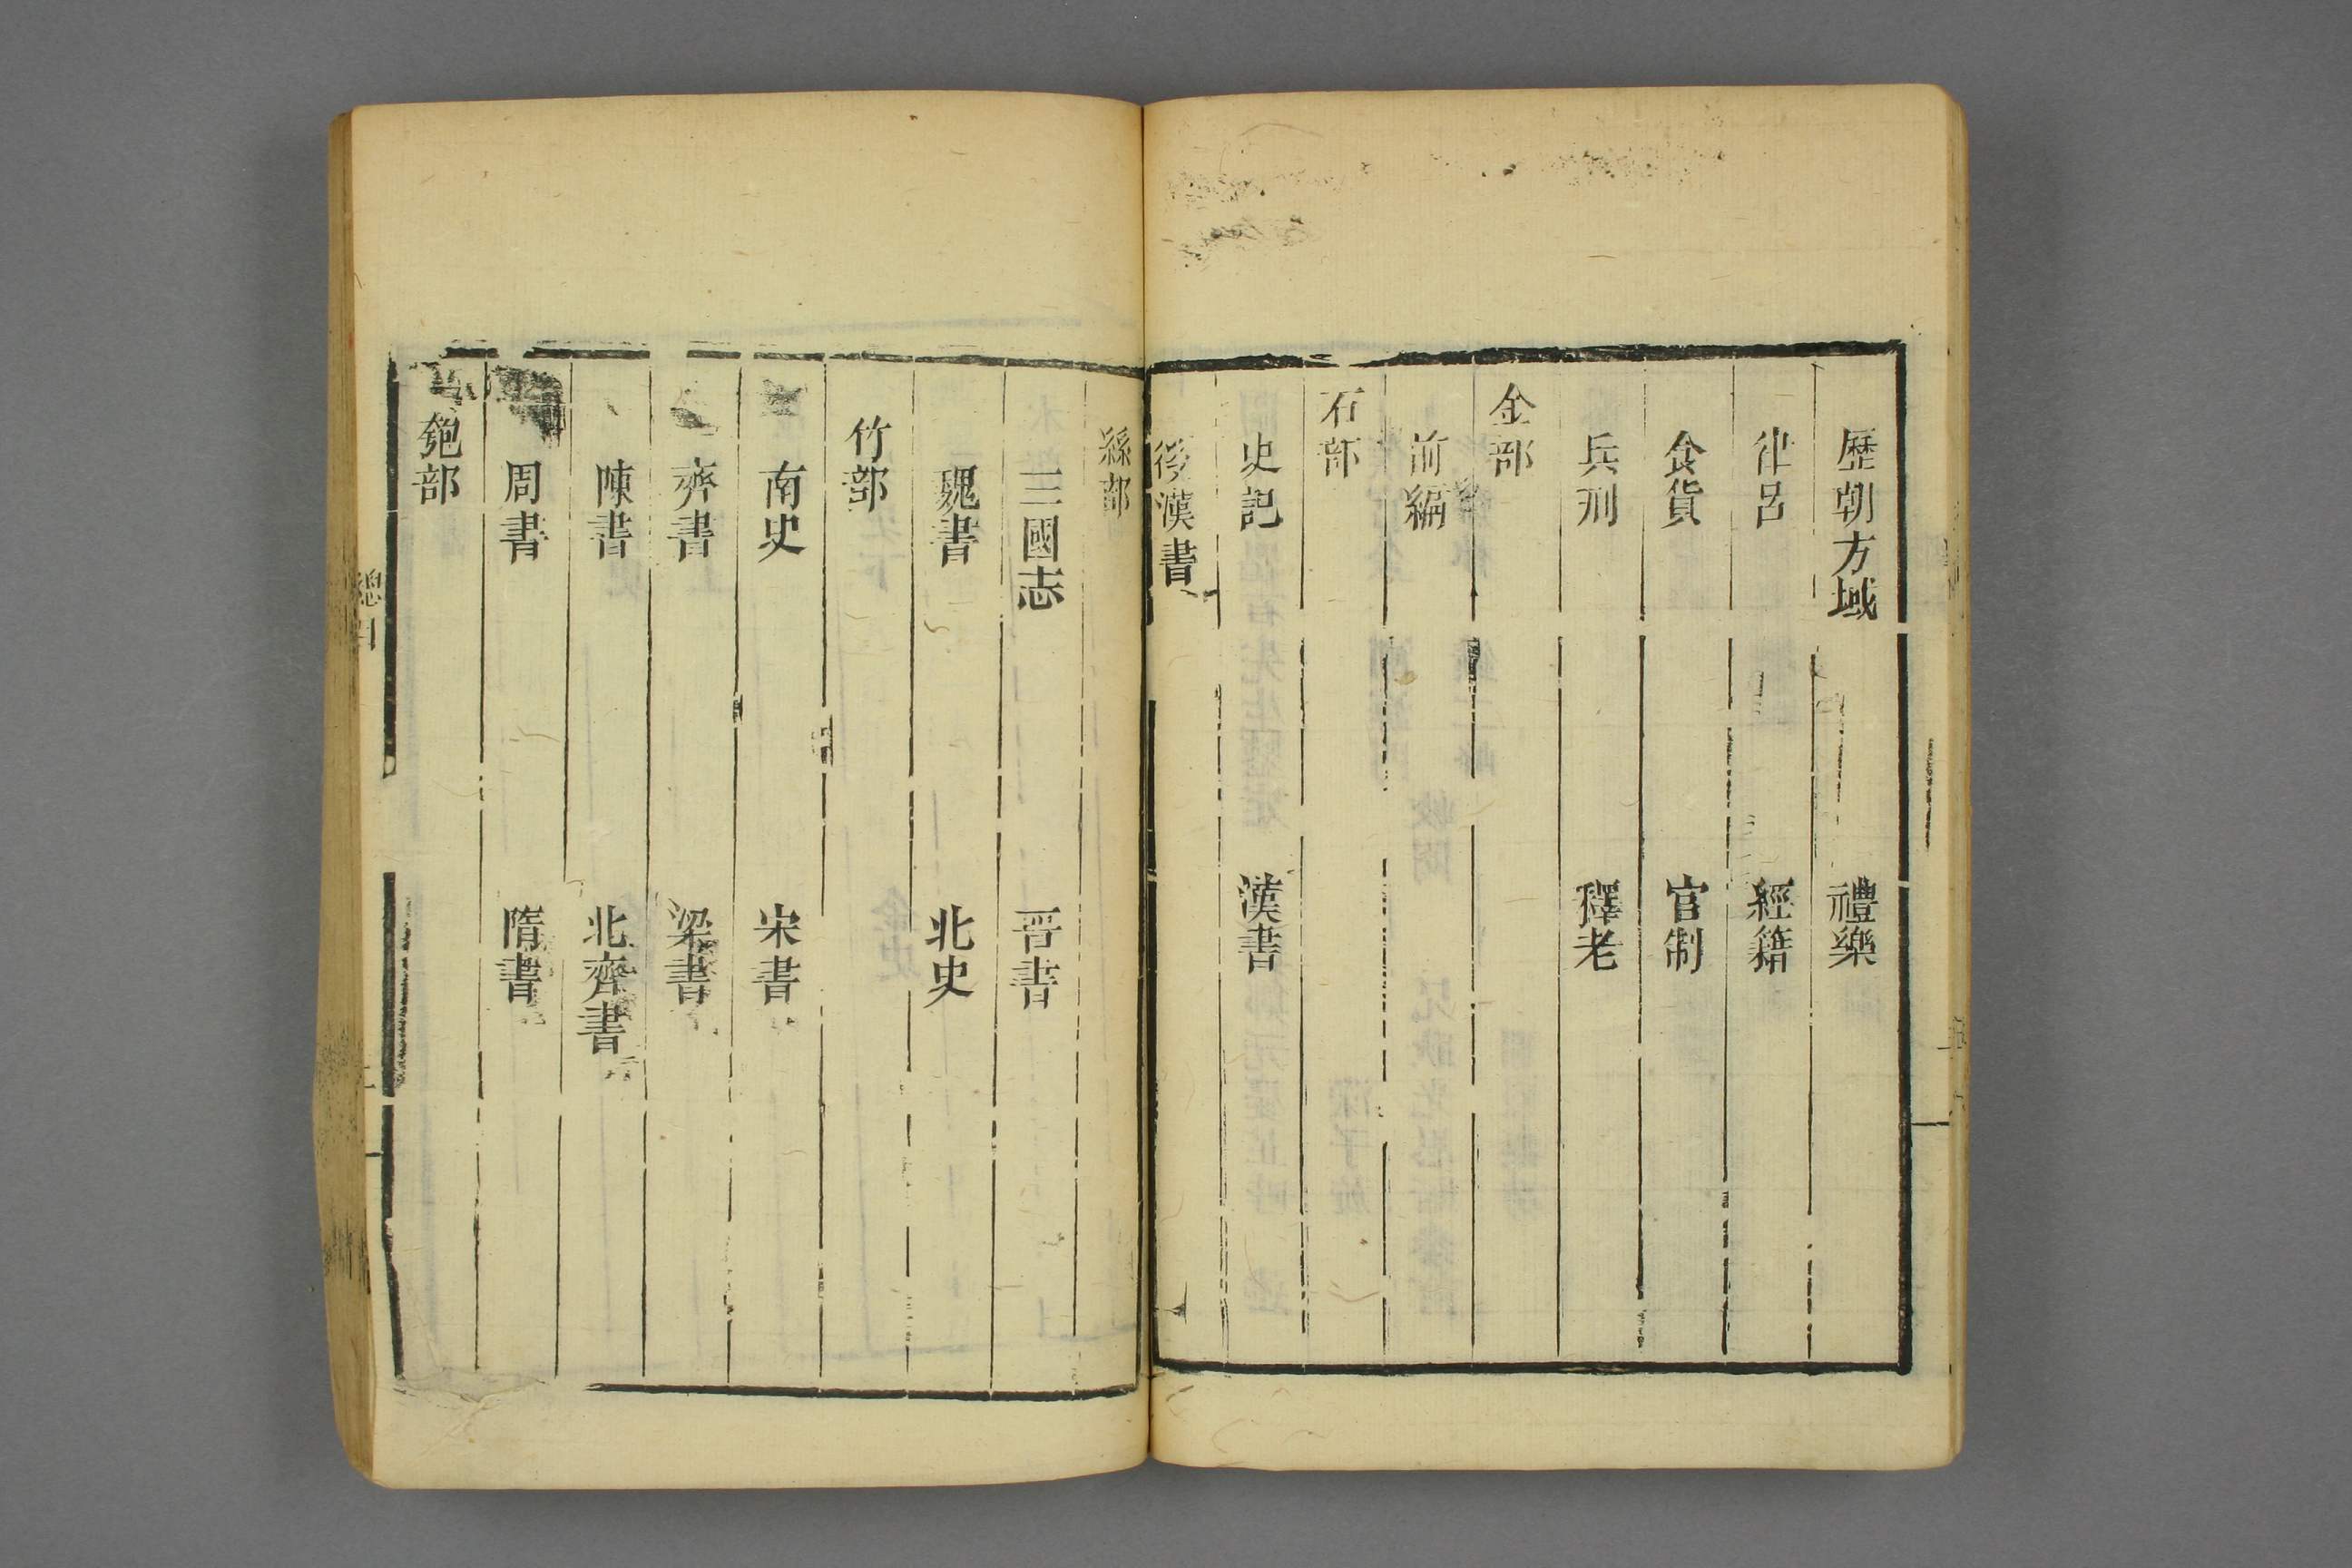 歷朝方域 禮樂
律呂 經籍
食貨 官制
兵刑 釋老
金部
前編
石部
史記 漢書
後漢書
絲部
三國志 晉書
魏書 北史
竹部
南史 宋書
齊書 梁書
陳書 北齊書
周書 隋書
匏部
總目